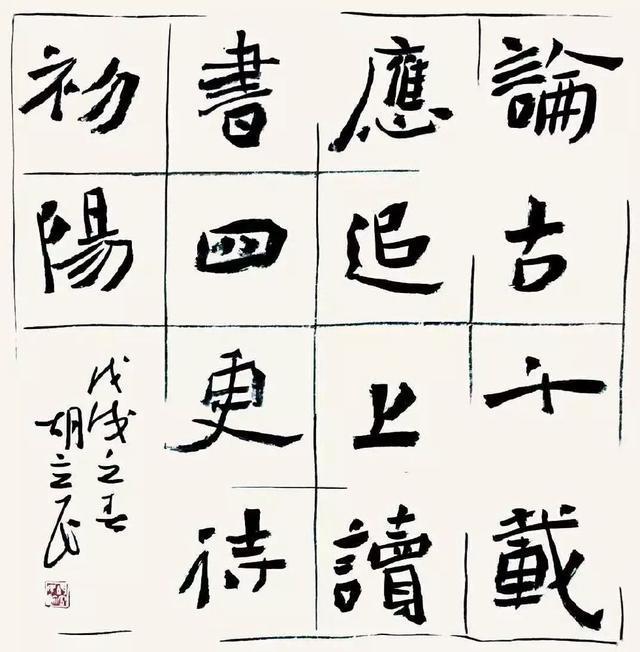 論古千載
應追上讀
書四更待
初陽
戊戌之春
胡立民